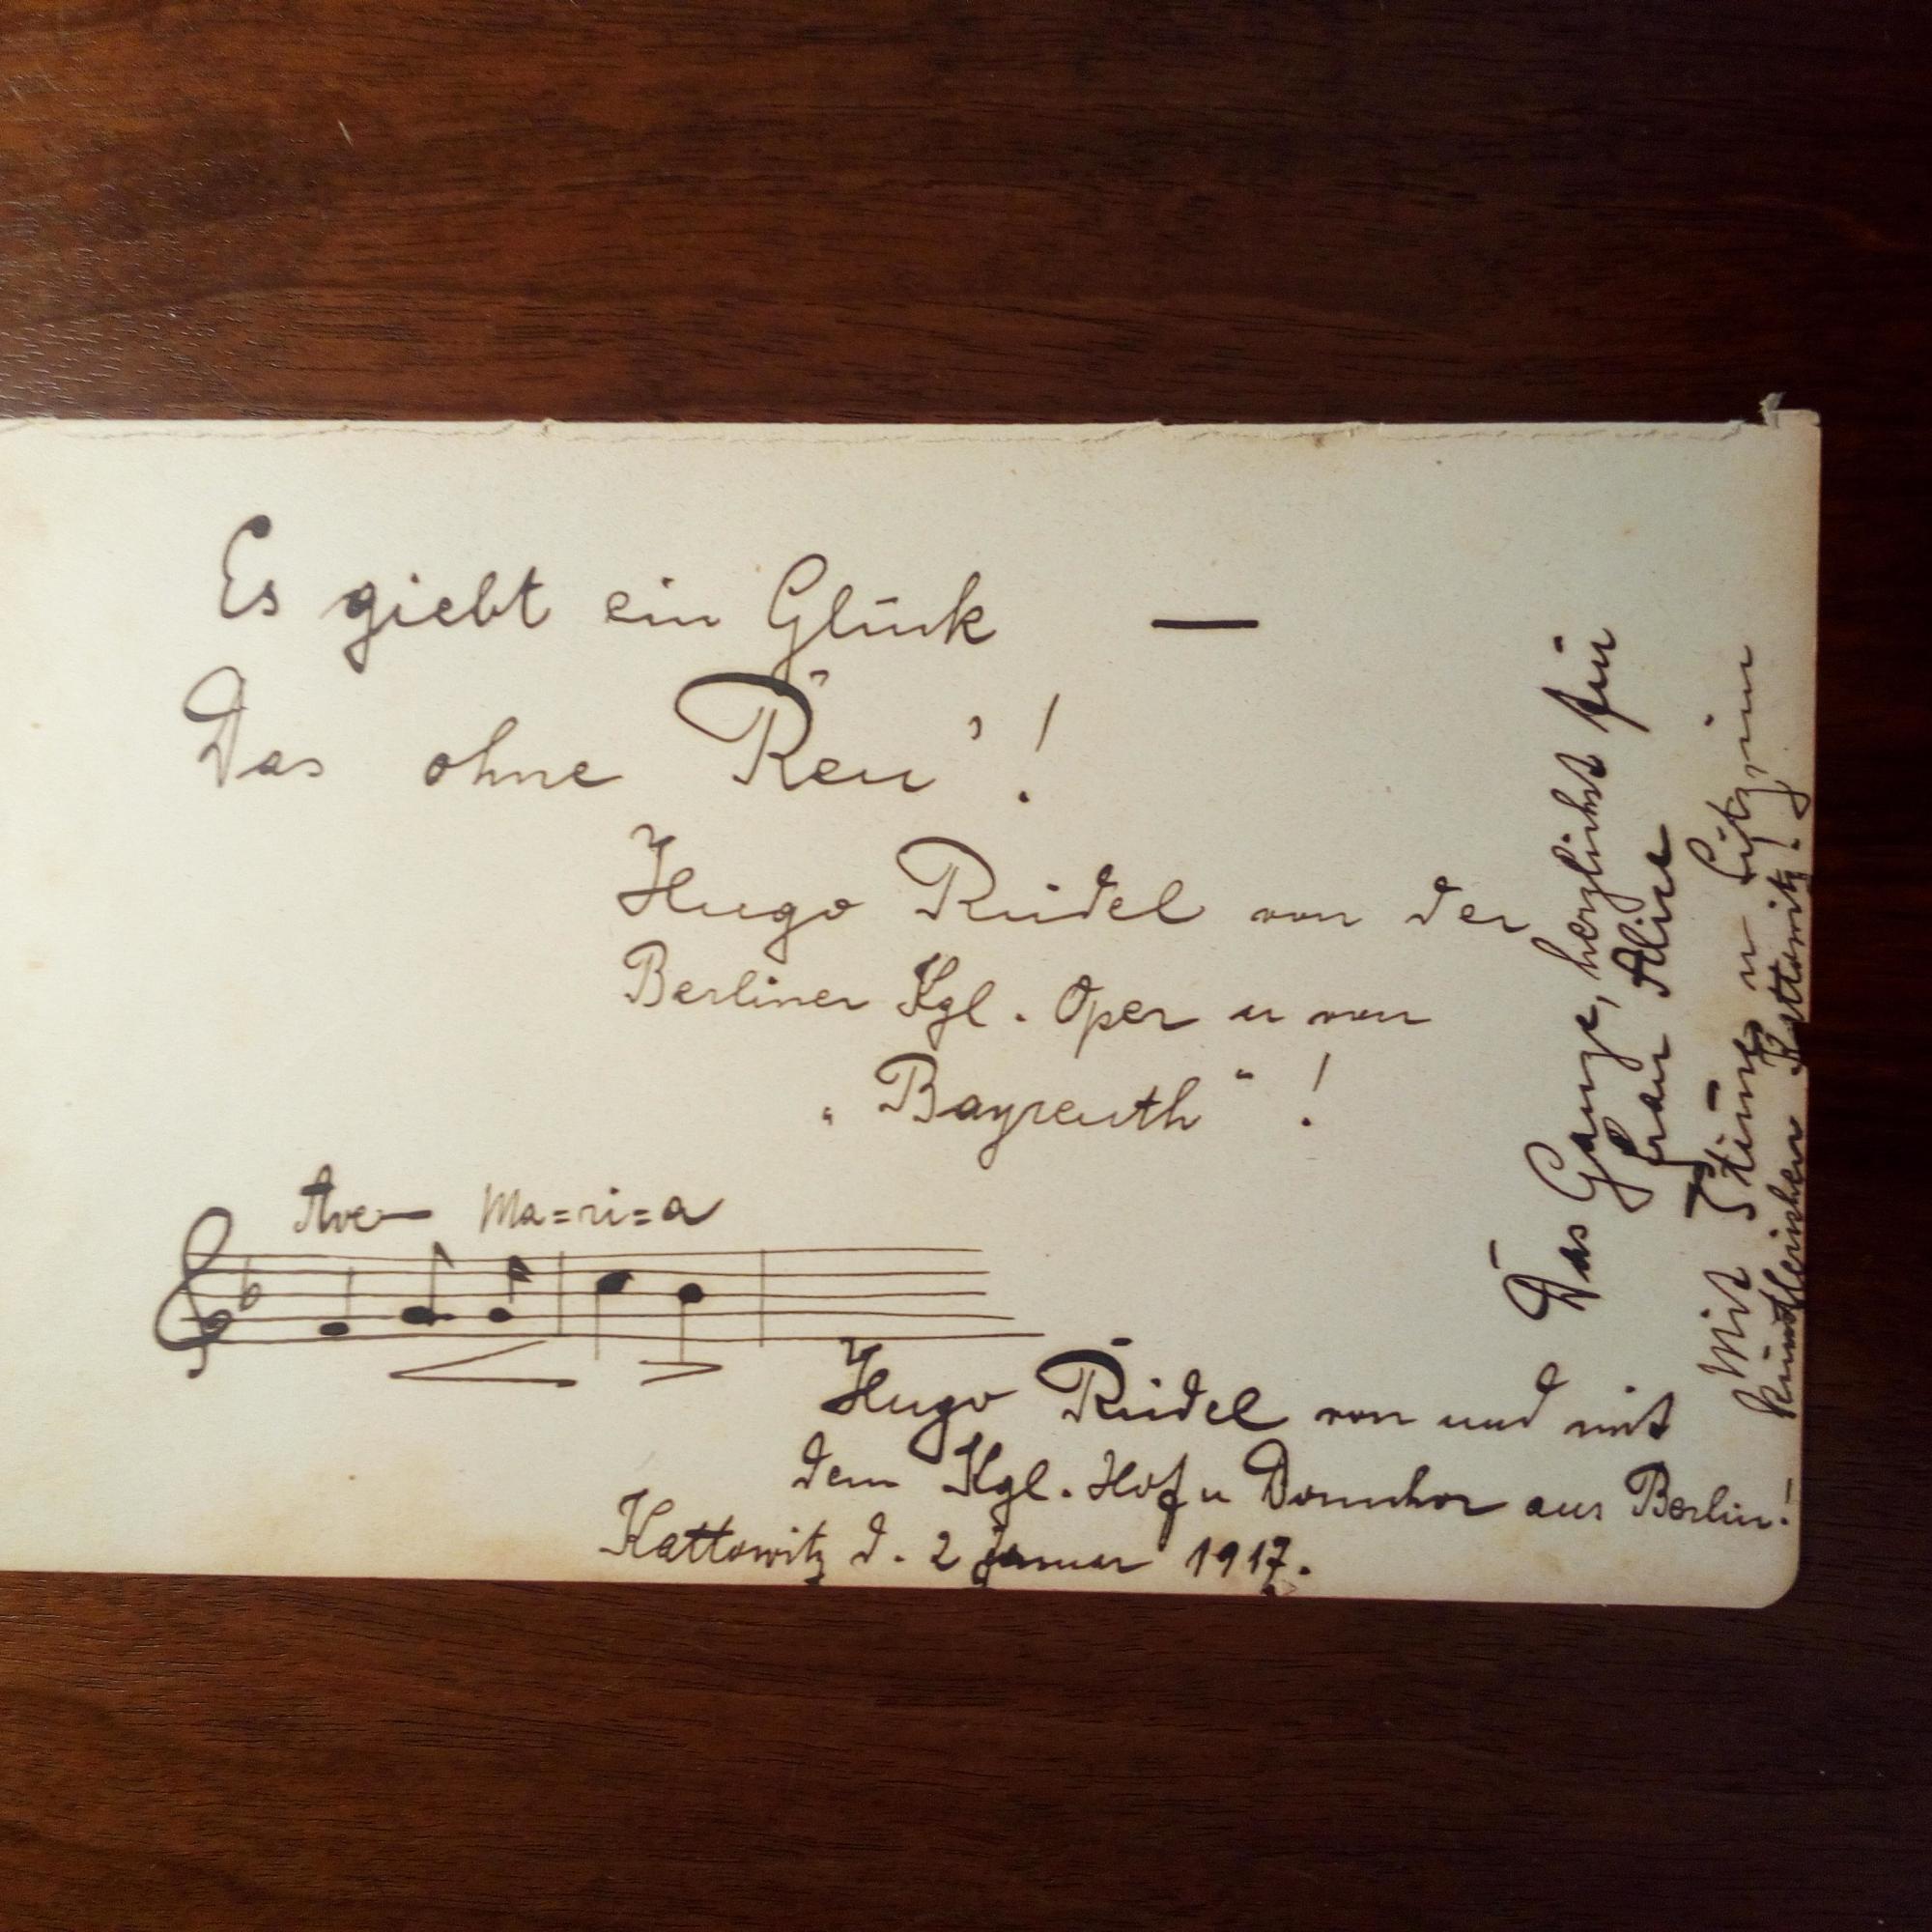 Es giebt ein Glück —
Das ohne Reu'!
Hugo Rüdel von der
Berliner Kgl. Oper u von
„Bayreuth“!
Ave— Ma=ri=a
Hugo Rüdel von und mit
dem Kgl. Hof u Domchor aus Berlin!
Kattowitz d. 2 januar 1917.
Das Ganze, herzlichst für
Frau Alice
Mit Stümg u Sitz im
künstlerischen Kattowitz!